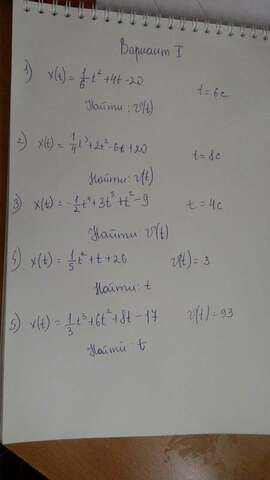 Вариант I
1) x(t) = 1/6 t² + 4t - 20
t = 6c
Найти: v(t)
2) x(t) = 1/4 t³ + 2t² - 6t + 20
t = 8c
Найти: v(t)
3) x(t) = -1/2 t⁴ + 3t³ + t² - 9
t = 4c
Найти v(t)
4) x(t) = 1/5 t² + t + 26 v(t) = 3
Найти: t
5) x(t) = 1/3 t³ + 6t² + 8t - 17 v(t) = 93
Найти: t